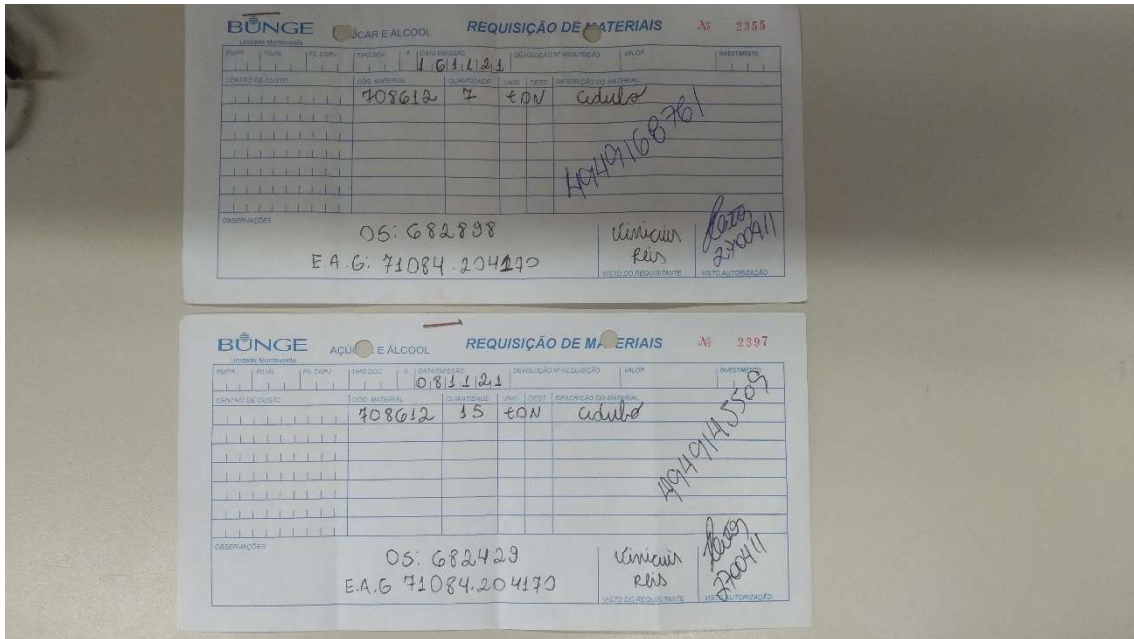 BUNGE
Unidade Monteverde
ÇÚCAR E ÁLCOOL
REQUISIÇÃO DE MATERIAIS
Nº 2355
EMPR FILIAL TIPO DOC DATA EMISSÃO DEVOLUÇÃO Nº REQUISIÇÃO VALOR INVESTIMENTO
161121
CENTRO DE CUSTO CÓD. MATERIAL QUANTIDADE UNID DEST DESCRIÇÃO DO MATERIAL
708612 7 tON adubo
4949168761
OBSERVAÇÕES
OS: 682898
E.A.G: 71084.204170
Vinicius
Reis
2700411
VISTO DO REQUISITANTE VISTO AUTORIZAÇÃO
BUNGE
Unidade Monteverde
AÇÚ E ÁLCOOL
REQUISIÇÃO DE MA ERIAIS
Nº 2397
EMPR FILIAL TIPO DOC DATA EMISSÃO DEVOLUÇÃO Nº REQUISIÇÃO VALOR INVESTIMENTO
081121
CENTRO DE CUSTO CÓD. MATERIAL QUANTIDADE UNID DEST DESCRIÇÃO DO MATERIAL
708612 15 tON adubo
4949145509
OBSERVAÇÕES
OS: 682429
E.A.G 71084.204170
Vinicius
Reis
2700411
VISTO DO REQUISITANTE VISTO AUTORIZAÇÃO